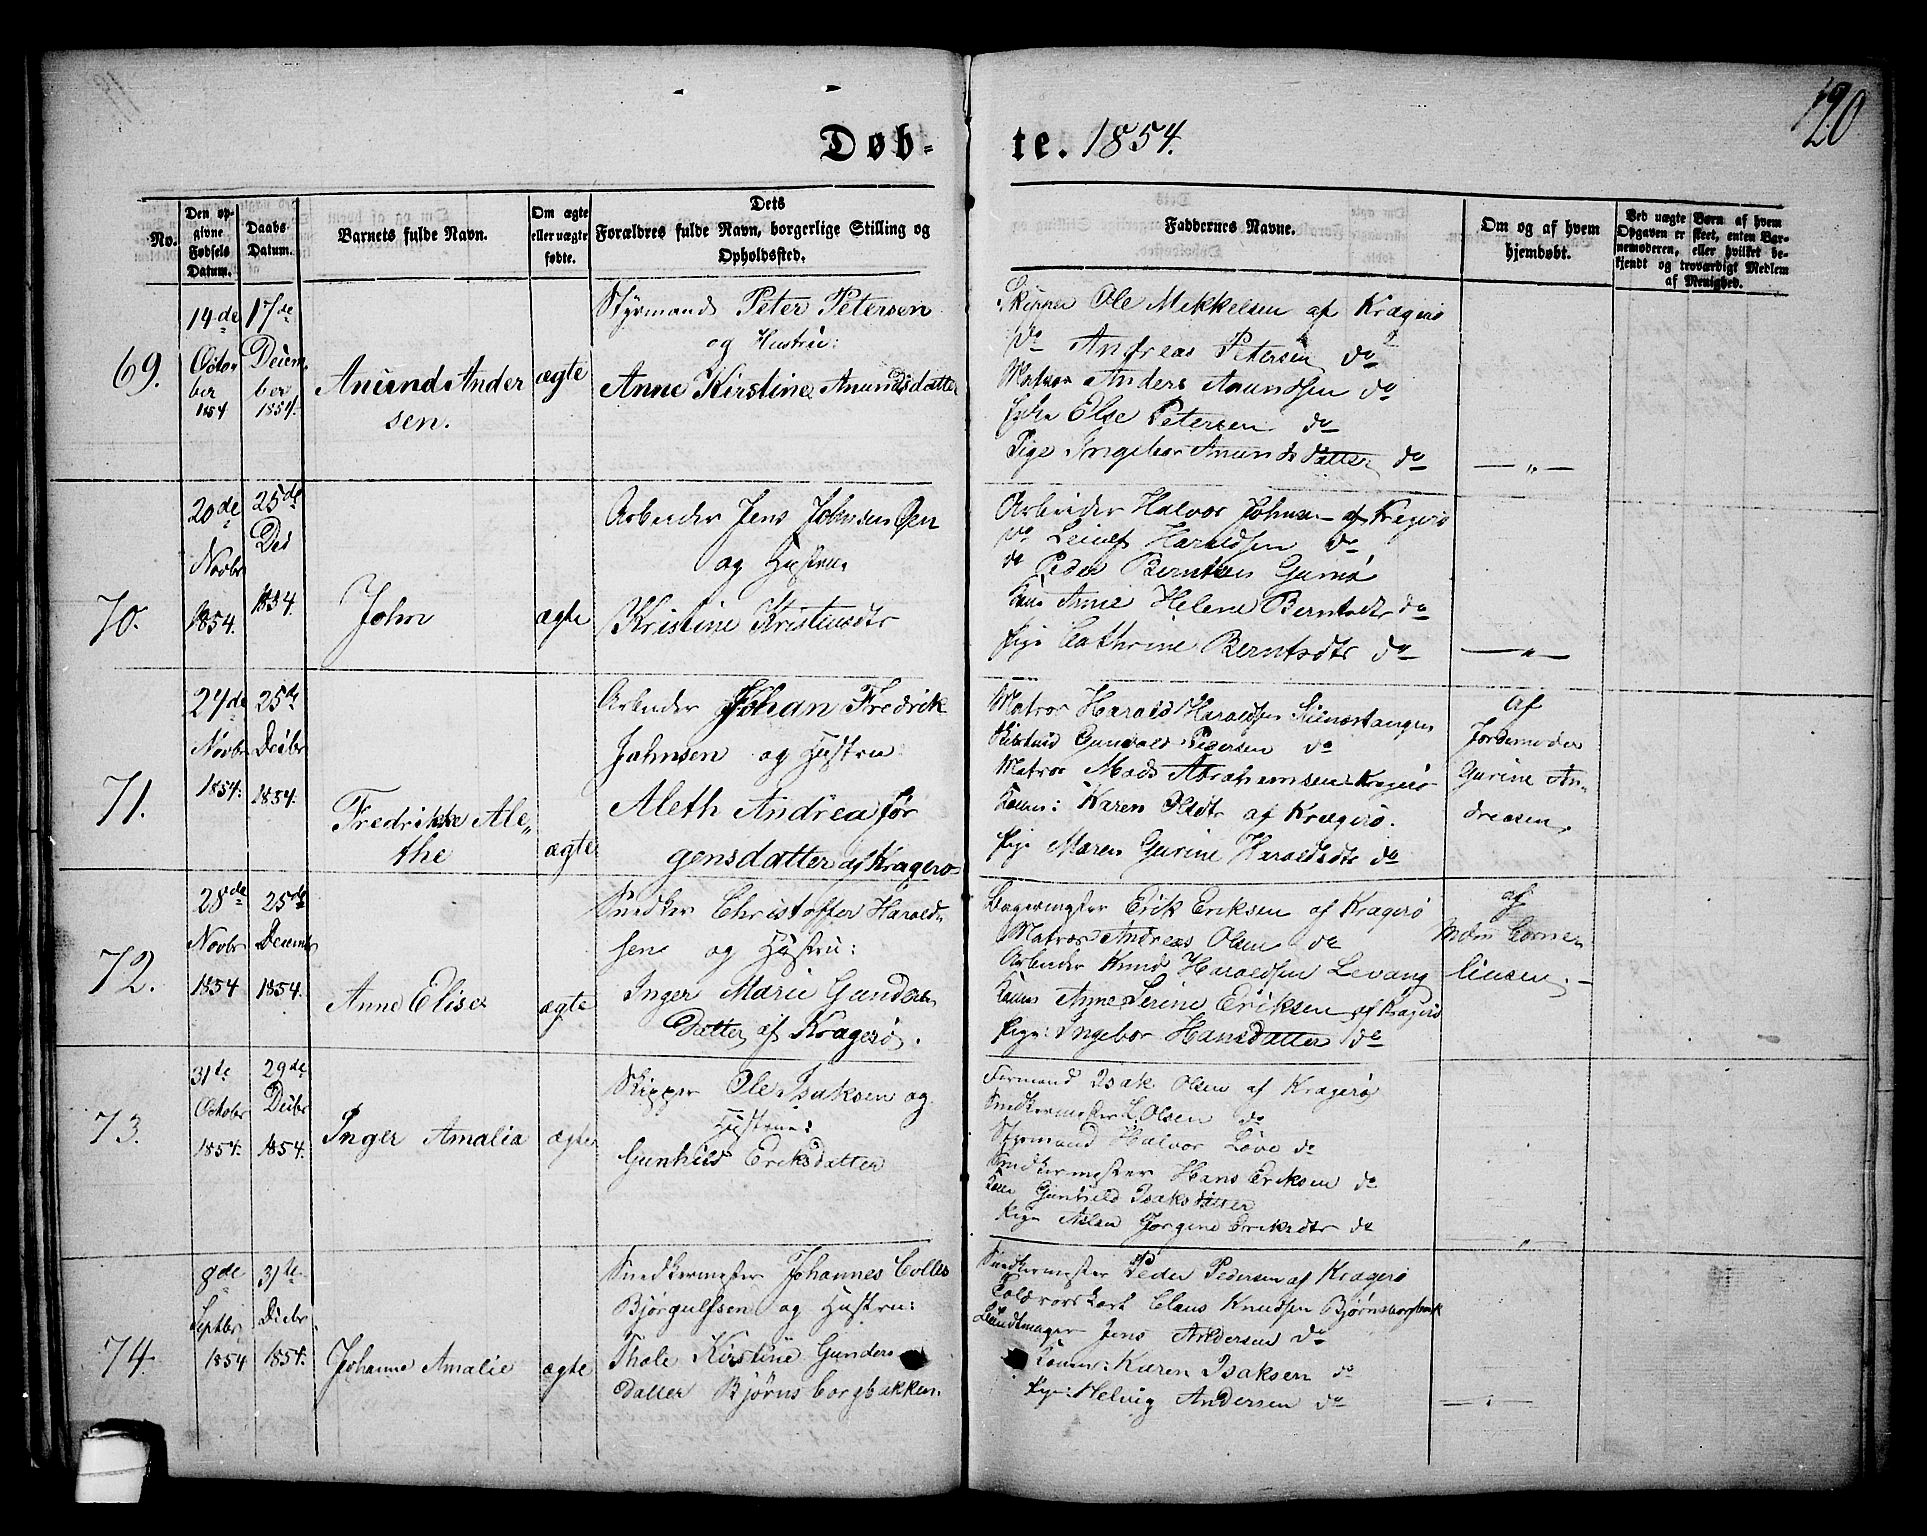 120
Døb- te. 1854.
No.
Den opgivne Fødsels Datum.
Daabs-Datum.
Barnets fulde Navn.
Om ægte eller uægte fødte.
Dets Forældres fulde Navn, borgerlige Stilling og Opholdssted.
Faddernes Navne.
Om og af hvem hjemdøbt.
Ved uægte Børn af hvem Opgaven er skeet, enten Barnemoderen, eller hvilket bekjendt og troværdigt Medlem af Menighed.
69.
14de
Octo-
ber
1854
17de
Decem-
ber
1854.
Anund Ander
sen.
ægte
Styrmand Peter Petersen
og Hustru:
Anne Kirstine Anundsdatter
Skipper Ole Mikkelsen af Kragerø
do Andreas Petersen do
Matros Anders Anundsen do
Else Petersen do
Pige Ingebor Anundsdatter do
— " —
70.
20de
Novbr
1854.
25de
Des
1854.
John
ægte
Arbeider Jens Johnsen Øen
og Hustru
Kristine Kristensdtr
Arbeider Halvor Johnsen af Kragerø
do Leiulf Haraldsen do
do Peder Berntsen Gumø
Kone Anne Helene Berntsdtr do
Pige Cathrine Berntsdtr do
— " —
71.
24de
Novbr
1854.
25de
Decbr
1854.
Fredrikke Ale-
the
ægte
Arbeider Johan Fredrik
Johnsen og Hustru:
Aleth Andrea Jør
gensdatter af Kragerø
Matros Harald Haraldsen
Gunvald Pedersen do
Matros Mads Abrahamsen Kragerø
Konen: Karen Olsdtr af Kragerø.
Pige Maren Gurine Haraldsdtr do
af
Jordemoder
Gurine An-
dreasen,
72.
28de
Novbr
1854
25de
Decembr
1854.
Anne Elise
ægte
Snedker Christoffer Harald-
sen og Hustru:
Inger Marie Gunders
datter af Kragerø.
Bagermester Erik Eriksen af Kragerø
Matros Andreas Olsen do
Arbeider Knud Haraldsen Levang
Konen Anne Serine Eriksen af Kragerø
Pige: Ingebor Hansdatter do
af
Mdm Corne-
liusen. —
73.
31te
Octobr
1854.
29de
Decbr
1854.
Inger Amalia
ægte
Skipper Ole Isaksen og
Hustrue:
Gunhild Eriksdatter
Formand Isak Olsen af Kragerø
Snedkermester L. Olsen do
Styrmand Halvor Løve do
Snedkermester Hans Eriksen do
Kone Gunhild Isaksdatter
Pige Aslau Jorgine Eriksdtr do
— " —
74.
8de
Septbr
1854
31te
Decbr.
1854.
Johanne Amalie
ægte
Snedkermester Johannes Colles
Bjørgulfsen og Hustru:
Thale Kirstine Gunders
datter Bjørnsborgbakken.
Snedkermester Peder Pedersen af Kragerø
Claus Knudsen Bjørnsborgbak
Jens Andersen do
Konen: Karen Isaksen do
Pige: Helvig Andersen do
— " —